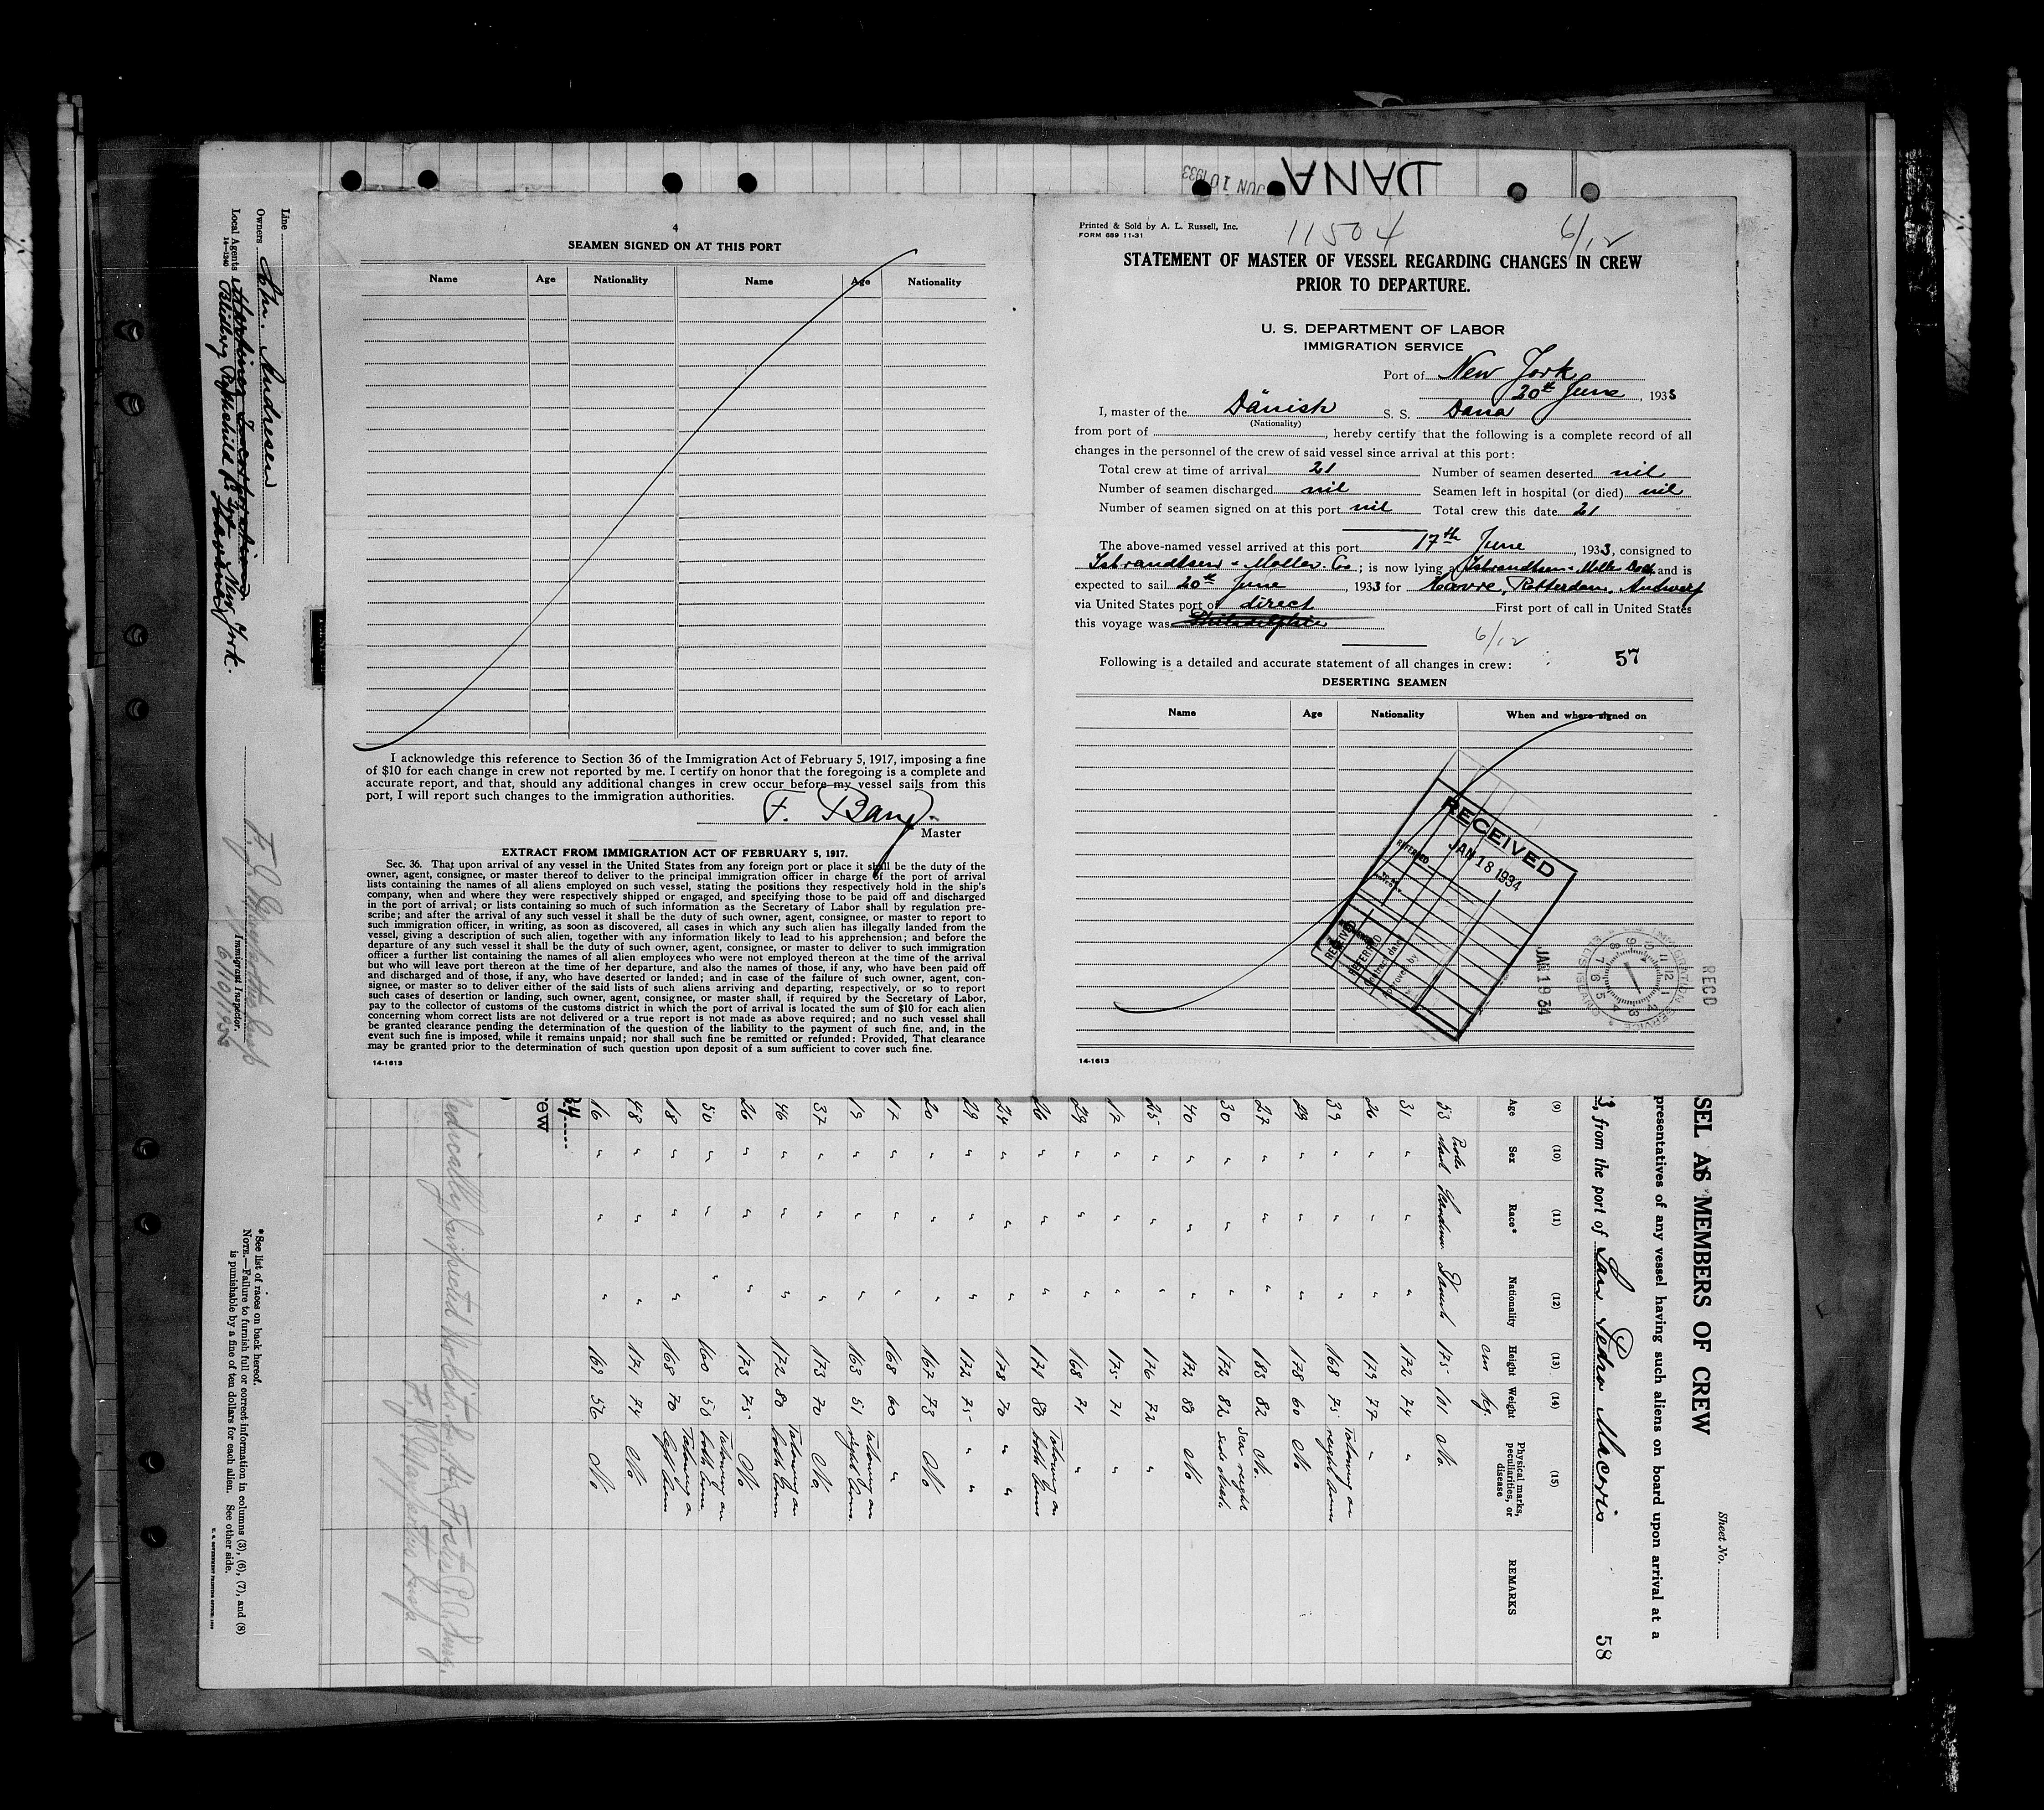 DANA
JUN 10 1933
4
SEAMEN SIGNED ON AT THIS PORT
Name Age Nationality Name Age Nationality
I acknowledge this reference to Section 36 of the Immigration Act of February 5, 1917, imposing a fine
of $10 for each change in crew not reported by me. I certify on honor that the foregoing is a complete and
accurate report, and that, should any additional changes in crew occur before my vessel sails from this
port, I will report such changes to the immigration authorities.
F. Bang.
Master
EXTRACT FROM IMMIGRATION ACT OF FEBRUARY 5, 1917.
Sec. 36. That upon arrival of any vessel in the United States from any foreign port or place it shall be the duty of the
owner, agent, consignee, or master thereof to deliver to the principal immigration officer in charge of the port of arrival
lists containing the names of all aliens employed on such vessel, stating the positions they respectively hold in the ship's
company, when and where they were respectively shipped or engaged, and specifying those to be paid off and discharged
in the port of arrival; or lists containing so much of such information as the Secretary of Labor shall by regulation pre-
scribe; and after the arrival of any such vessel it shall be the duty of such owner, agent, consignee, or master to report to
such immigration officer, in writing, as soon as discovered, all cases in which any such alien has illegally landed from the
vessel, giving a description of such alien, together with any information likely to lead to his apprehension; and before the
departure of any such vessel it shall be the duty of such owner, agent, consignee, or master to deliver to such immigration
officer a further list containing the names of all alien employees who were not employed thereon at the time of the arrival
but who will leave port thereon at the time of her departure, and also the names of those, if any, who have been paid off
and discharged and of those, if any, who have deserted or landed; and in case of the failure of such owner, agent, con-
signee, or master so to deliver either of the said lists of such aliens arriving and departing, respectively, or so to report
such cases of desertion or landing, such owner, agent, consignee, or master shall, if required by the Secretary of Labor,
pay to the collector of customs of the customs district in which the port of arrival is located the sum of $10 for each alien
concerning whom correct lists are not delivered or a true report is not made as above required; and no such vessel shall
be granted clearance pending the determination of the question of the liability to the payment of such fine, and, in the
event such fine is imposed, while it remains unpaid; nor shall such fine be remitted or refunded: Provided, That clearance
may be granted prior to the determination of such question upon deposit of a sum sufficient to cover such fine.
14-1613
Printed & Sold by A. L. Russell, Inc.
FORM 689 11-31
11504 6/12
STATEMENT OF MASTER OF VESSEL REGARDING CHANGES IN CREW
PRIOR TO DEPARTURE.
U. S. DEPARTMENT OF LABOR
IMMIGRATION SERVICE
Port of New York
20th June, 1933
I, master of the Danish S. S. Dana
(Nationality)
from port of , hereby certify that the following is a complete record of all
changes in the personnel of the crew of said vessel since arrival at this port:
Total crew at time of arrival 21 Number of seamen deserted nil
Number of seamen discharged nil Seamen left in hospital (or died) nil
Number of seamen signed on at this port nil Total crew this date 21
The above-named vessel arrived at this port 17th June, 1933, consigned to
Isbrandtsen - Moller Co; is now lying at Isbrandtsen-Moller Dock and is
expected to sail 20th June, 1933 for Havre, Rotterdam, Antwerp
via United States port of direct First port of call in United States
this voyage was Philadelphia
6/12
57
Following is a detailed and accurate statement of all changes in crew:
DESERTING SEAMEN
Name Age Nationality When and where signed on
RECEIVED
JAN 18 1934
REFERRED
RECEIVED
REFERRED
JAN 19 34
ELLIS ISLAND
IMMIGRATION SERVICE
REC'D
14-1613
Sheet No.
58
SEL AS MEMBERS OF CREW
presentatives of any vessel having such aliens on board upon arrival at a
3, from the port of San Pedro Macoris
(9) (10) (11) (12) (13) (14) (15)
Age Sex Race* Nationality Height Weight Physical marks, peculiarities, or disease REMARKS
cm kg.
53 Male Scandinav Danish 175 101 No
31 " " " 172 74 "
26 " " " 179 77 "
39 " " " 168 75 Tatowing on right arm
29 " " " 178 60 No
27 " " " 183 82 No.
30 " " " 172 82
40 " " " 172 80 No
25 " " " 176 72 "
17 " " " 175 71 "
29 " " " 168 71 "
26 " " " 171 80 Tatowing on both arms
24 " " " 178 70 "
29 " " " 172 75 "
20 " " " 167 73 No
17 " " " 168 60 "
19 " " " 163 51 Tatowing on right arm.
37 " " " 173 70 No
46 " " " 172 80 Tatowing on both arms
26 " " " 173 75 No
50 " " " 160 50 Tatowing on both arms
18 " " " 168 70 Tatowing on left arm
48 " " " 171 74 No
16 " " " 169 56 No
24
ew
Medically inspected
Line
Owners Chr. Andresen
Local Agents
14-1240
New York.
Immigrant Inspector.
6/10/1933
*See list of races on back hereof.
NOTE.—Failure to furnish full or correct information in columns (3), (6), (7), and (8)
is punishable by a fine of ten dollars for each alien. See other side.
U. S. GOVERNMENT PRINTING OFFICE